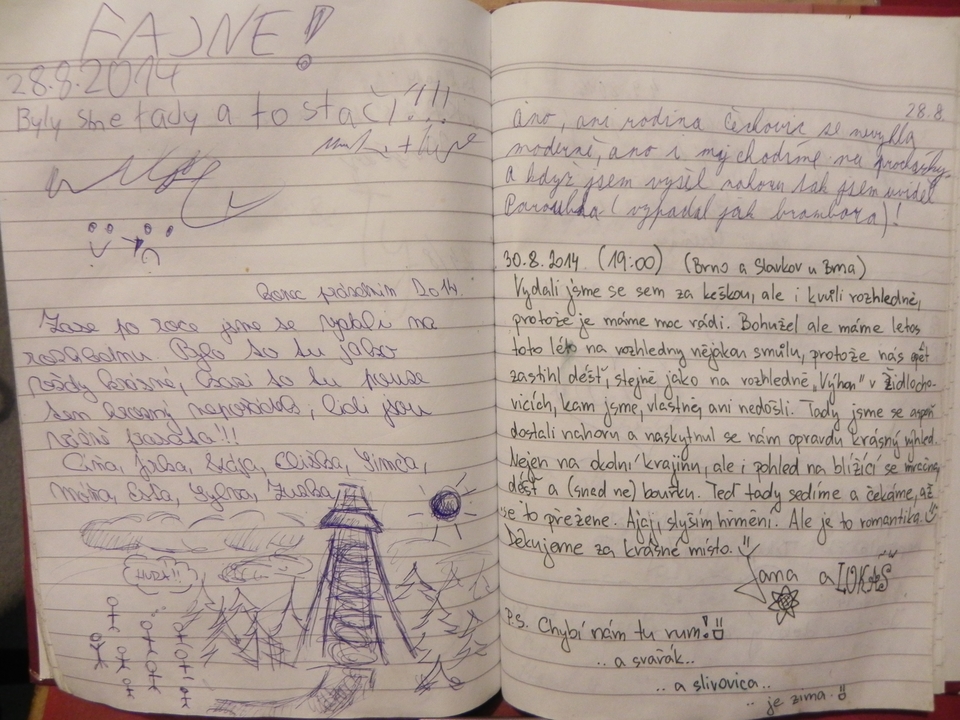 FAJNE!
28.8.2014
Byly sme tady a to stačí!!!
Konec prázdnin 2014.
Zase po roce jsme se vydali na
rozhlednu. Bylo to tu jako
vždy krásné,
lidi jsou
prasata!!!
Eliška, Simča,
HURÁ!!
28.8.
áno, ani rodina se nevyhla
moderně, ano i my chodíme na procházky
a když jsem vyšel nahoru tak jsem uviděl
Paroubka (vypadal jak brambora)!
30.8.2014 (19:00) (Brno a Slavkov u Brna)
Vydali jsme se sem za keškou, ale i kvůli rozhledně,
protože je máme moc rádi. Bohužel ale máme letos
toto léto na rozhledny nějakou smůlu, protože nás opět
zastihl déšť, stejně jako na rozhledně „Výhon" v Židlocho-
vicích, kam jsme, vlastně, ani nedošli. Tady jsme se aspoň
dostali nahoru a naskytnul se nám opravdu krásný výhled.
Nejen na okolní krajinu, ale i pohled na blížící se mračna,
déšť a (snad ne) bouřku. Teď tady sedíme a čekáme, až
se to přežene. Ajaj, slyším hřmění. Ale je to romantika.
Děkujeme za krásné místo.
Jana a LUKÁŠ
P.S. Chybí nám tu rum!
..a svařák..
..a slivovica..
..je zima.